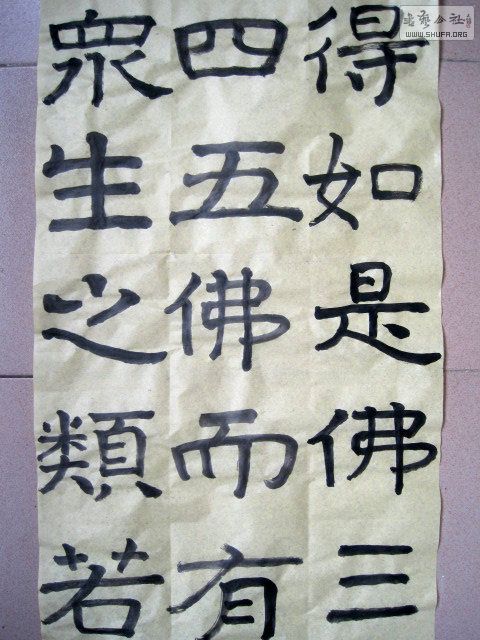 得如是佛三
四五佛而有
眾生之類若
书艺公社
WWW.SHUFA.ORG